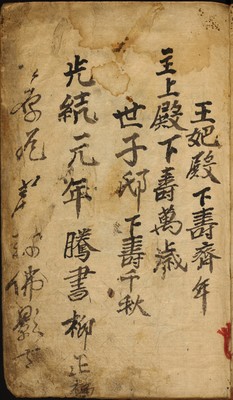 王妃殿下壽齊年
主上殿下壽萬歲
世子邸下壽千秋
光緒元年騰書柳
佛影